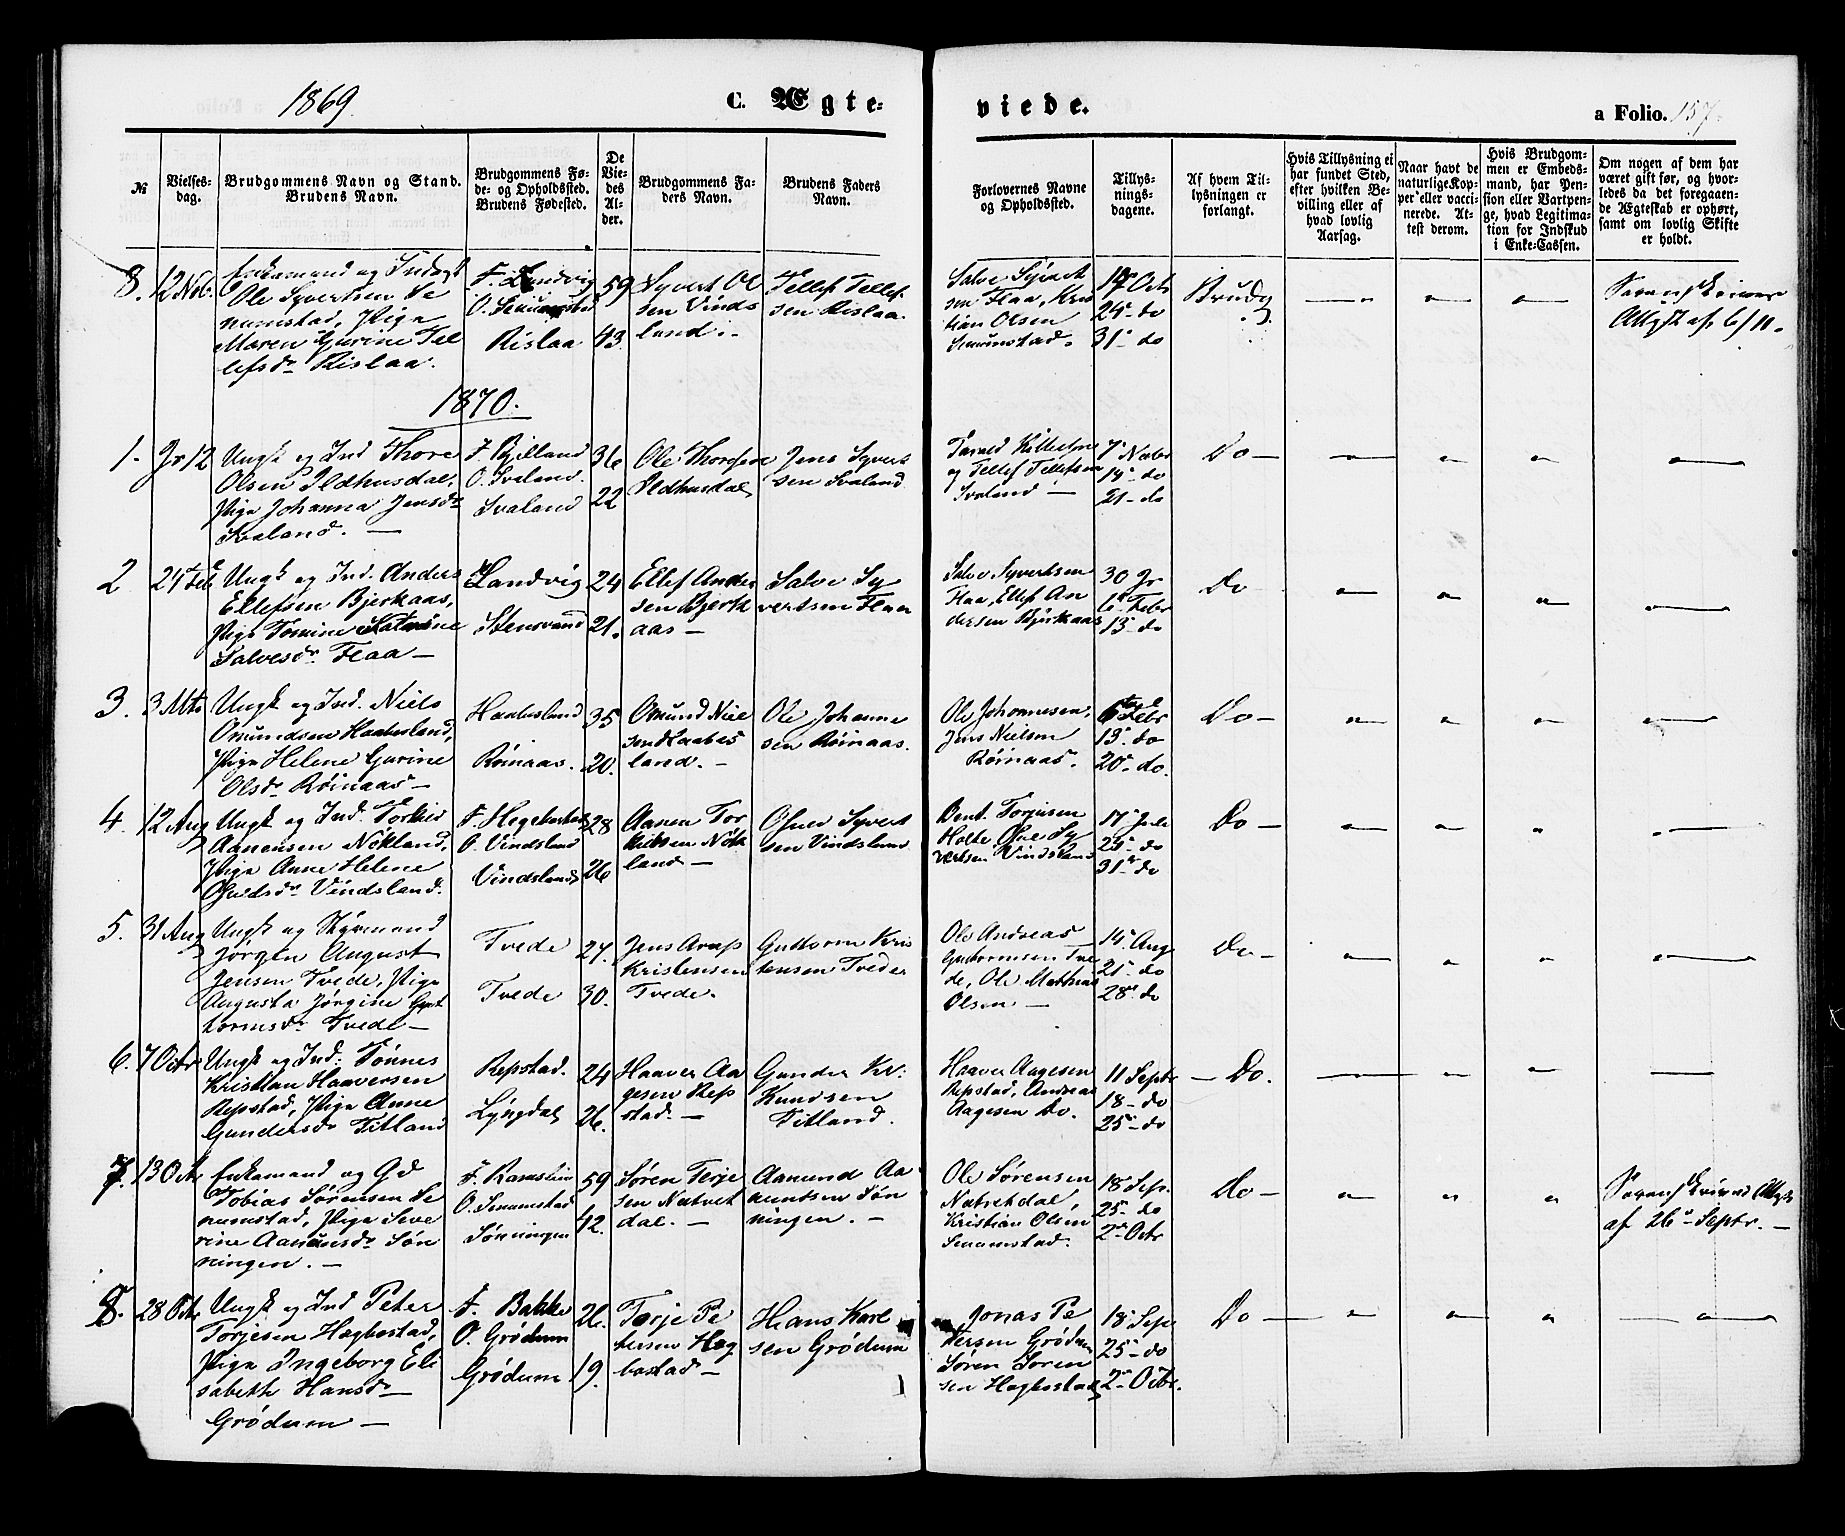 1869.
C. Ægte-
viede.
a Folio. 157.
№
Vielses-
dag.
Brudgommens Navn og Stand.
Brudens Navn.
Brudgommens Fø-
de- og Opholdssted.
Brudens Fødested.
De
Vie-
des
Al-
der.
Brudgommens Fa-
ders Navn.
Brudens Faders
Navn.
Forlovernes Navne
og Opholdssted.
Tillys-
nings-
dagene.
Af hvem Til-
lysningen er
forlangt.
Hvis Tillysning ei
har fundet Sted,
efter hvilken Be-
villing eller af
hvad lovlig
Aarsag.
Naar havt de
naturlige Kop-
per eller vacci-
nerede. At-
test derom.
Hvis Brudgom-
men er Embeds-
mand, har Pen-
sion eller Vartpen-
ge, hvad Legitima-
tion for Indskud
i Enke-Cassen.
Om nogen af dem har
været gift før, og hvor-
ledes da det foregaaen-
de Ægteskab er ophørt,
samt om lovlig Skifte
er holdt.
8. 12 Nob.
Enkemand og Inderst
Ole Syvertsen Se
numstad, Pige
Maren Gurine Tel
lefsdr Rislaa.
F. Landvig
O. Senumstad
Rislaa
59
43.
Syvert Ol
sen Vinds
land.
Tellef Tellef
sen Rislaa.
Salve Syvert
sen Flaa, Kris
tian Olsen
Senumstad.
17 Octr
24- do
31- do
Brudg.
Sorenskriverens
Attest af 6/11.
1870.
1. Jr 12
Ungk og Ind Thore
Olsen Ildhusdal,
Pige Johanna Jensdr
Svaland. —
F. Bjelland
O. Svaland.
Svaland
36
22
Ole Thorsen
Ildhusdal
Jens Syvert
sen Svaland
og Tellef Tellefsen
Svaland —
7- Nobr
14- do
21- do
Do —
2 24 Feb
Ungk og Ind. Anders
Ellefsen Bjerkaas,
Pige Tomine Katrine
Salvesdr Flaa —
Landvig
Stensvand
24
21.
Ellef Ander
sen Bjerk
aas —
Salve Sy
vertsen Flaa
Salve Syvertsen
Flaa, Ellef An
dersen Bjerkaas
30 Jr
6 Febr
13- do
Do
3. 3 Mts
Ungk og Ind. Niels
Omundsen Haabesland,
Pige Helene Gurine
Olsdr Røinaas —
Haabesland
Røinaas.
35
20.
Omund Niel
sen Haabes
land. —
Ole Johanne
sen Røinaas.
Ole Johannesen,
Jens Nielsen
Røinaas.
6 Febr
13- do
20- do.
Do —
4. 12 Aug
Ungk og Ind. Torkel
Aanensen Nökland,
Pige Anne Helene
Vindsland.
F. Hegebostad
O. Vindsland
Vindsland
28
26
Aanen Tor
kildsen Nök
land —
Syvert
sen Vindsland
Bent Torjusen
Holte, Ole Sy
vertsen Vindsland
17- Juli
24- do
31- do
Do —
5. 31 Aug
Ungk og Styrmand
Jørgen August
Jensen Tvede, Pige
Augusta Jørgine Gut
tormsdr Tvede —
Tvede
Tvede
27.
30.
Jens Arup
Kristensen
Tvede.
Guttorm Kris
tensen Tvede
Ole Andreas
Guttormsen Tve
de, Ole Mathias
Olsen —
14- Aug
21- do
28- do
Do —
6. 7 Octr
Ungk og Ind: Tönnes
Kristian Haaversen
Repstad, Pige Anne
Gundersdr Titland
Repstad.
Lyngdal
24
26.
Haaver Aa
gesen Rep
stad. —
Gunder Kr.
Knudsen
Titland.
Haaver Aagesen
Repstad, Andreas
Aagesen Do.
11 Septr
18- do
25- do
— Do.
7. 13 Octr
Enkemand og Gd
Tobias Sörensen Se
numstad, Pige Seve
rine Aanunsdr Søn
ningen. —
F. Ramslien
O. Senumstad
Sönningen
59
42.
Sören Terje
sen Natvet
dal. —
Aanund Aa
nuntsen Sön
ningen. —
Ole Sörensen
Natvetdal
Kristian Olsen
Senumstad.
18 Sep.
25- do
2- Octr
Do —
Sorenskriverens Attest
af 26- Septr. —
8. 28 Octr
Ungk og Ind Peter
Torjesen Hægbostad,
Pige Ingeborg Eli
sabeth Hansdr
Grödum —
F. Bakke
O. Grödum
Grödum
26.
19.
Torje Pe
tersen Hæg
bostad —
Hans Karl
sen Grödum
Jonas Pe
tersen Grödum
Sören Sören
sen Hægbostad
18- Sep
25- do
2- Octbr.
Do —